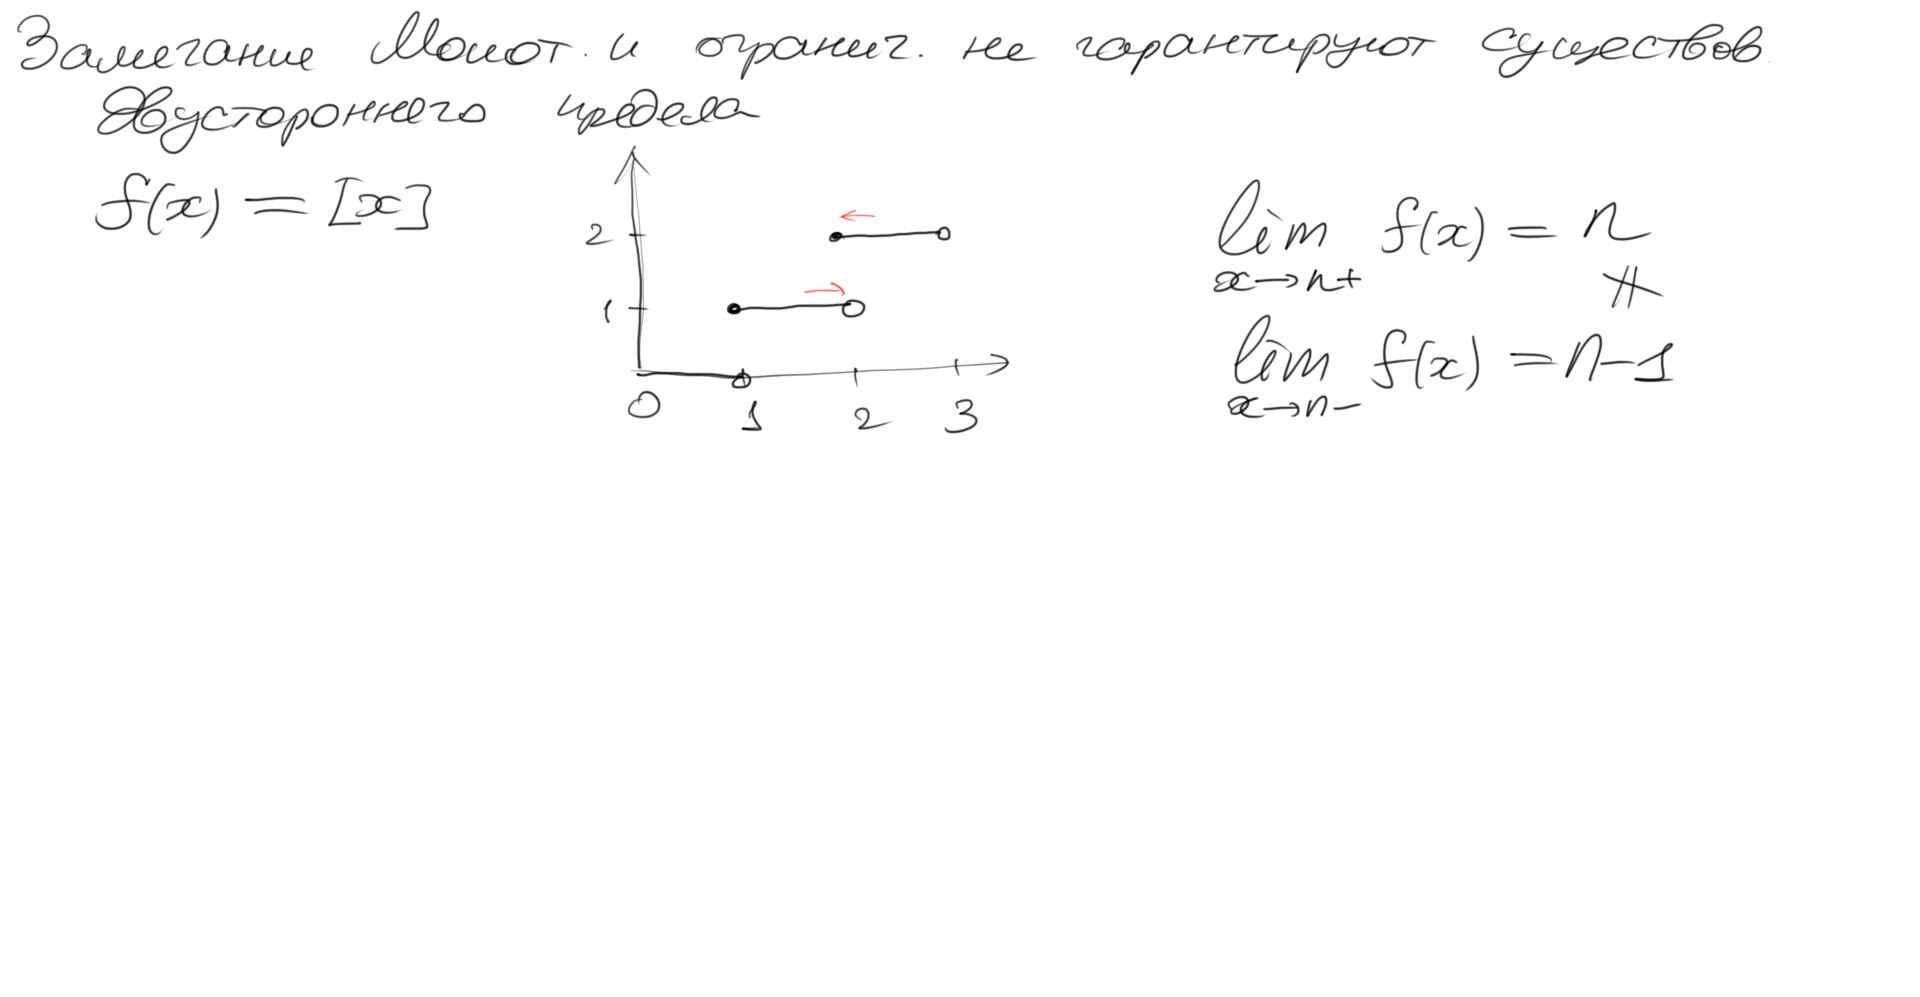 Замечание Монот. и огранич. не гарантируют существов.
двустороннего предела
f(x) = [x]
2
1
0 1 2 3
lim f(x) = n
x→n+
≠
lim f(x) = n-1
x→n-